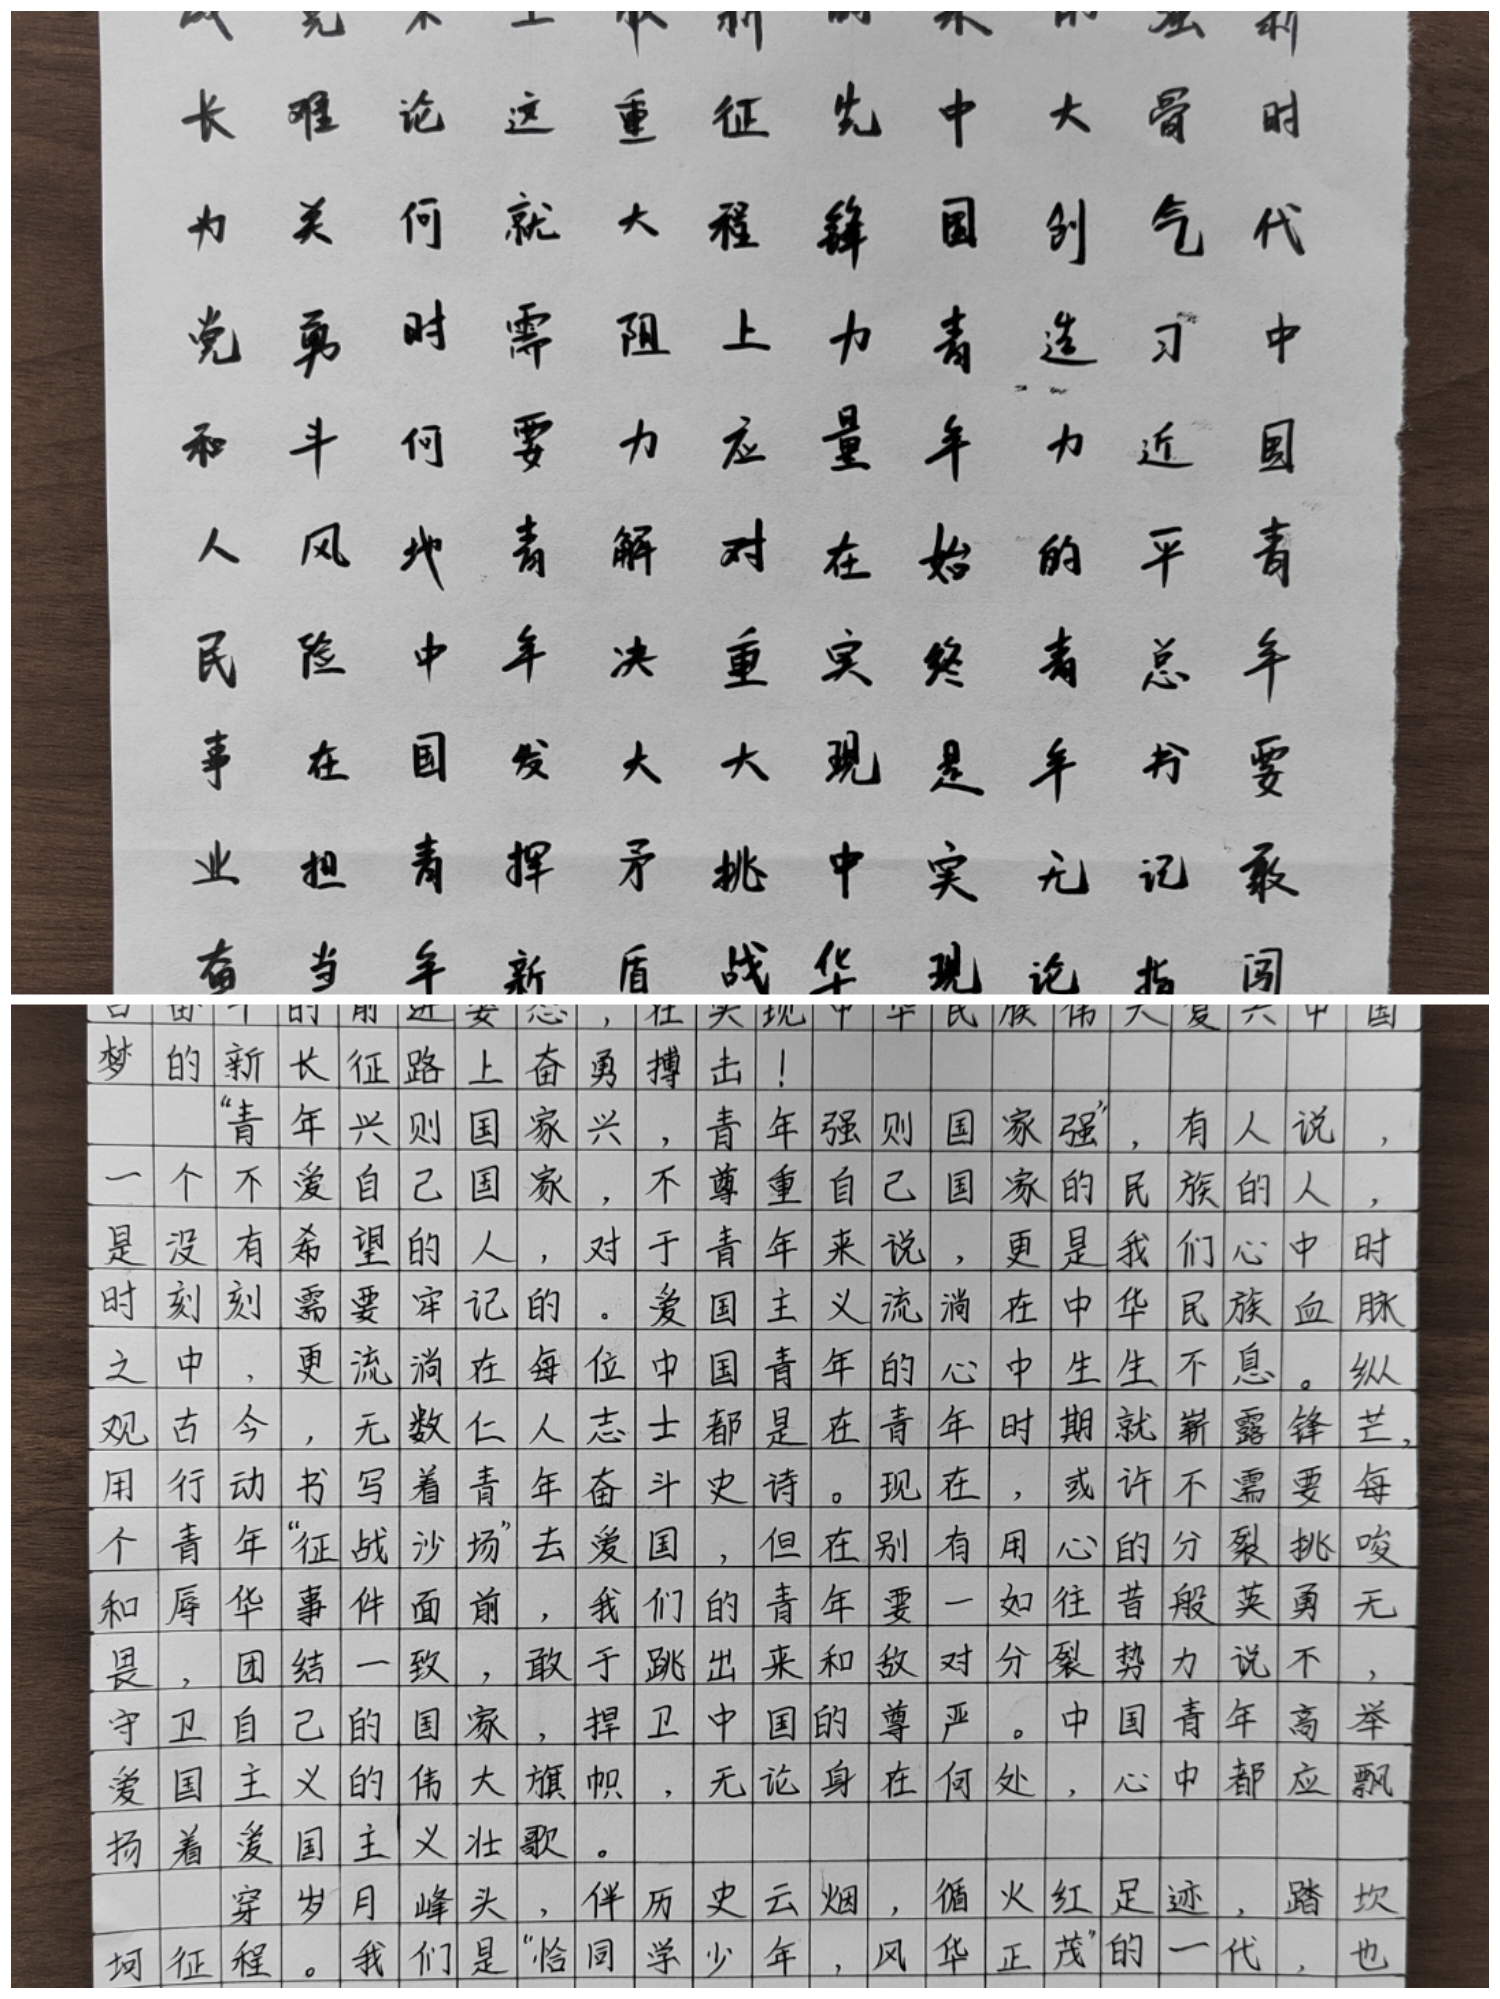 时代中国青年要敢闯
骨气习近平总书记指
大创造力的青年无论
中国青年始终是实现
先锋力量在实现中华
征程上应对重大挑战
重大阻力解决大矛盾
这就需要青年发挥新
论何时何地中国青年
难关勇斗风险在担当
长为党和人民事业奋
的前进姿态，在实现中华民族伟大复兴中国
梦的新长征路上奋勇搏击！
“青年兴则国家兴，青年强则国家强”，有人说，
一个不爱自己国家，不尊重自己国家的民族的人，
是没有希望的人，对于青年来说，更是我们心中时
时刻刻需要牢记的。爱国主义流淌在中华民族血脉
之中，更流淌在每位中国青年的心中生生不息。纵
观古今，无数仁人志士都是在青年时期就崭露锋芒，
用行动书写着青年奋斗史诗。现在，或许不需要每
个青年“征战沙场”去爱国，但在别有用心的分裂挑唆
和辱华事件面前，我们的青年要一如往昔般英勇无
畏，团结一致，敢于跳出来和敌对分裂势力说不，
守卫自己的国家，捍卫中国的尊严。中国青年高举
爱国主义的伟大旗帜，无论身在何处，心中都应飘
扬着爱国主义壮歌。
穿岁月峰头，伴历史云烟，循火红足迹，踏坎
坷征程。我们是“恰同学少年，风华正茂”的一代，也